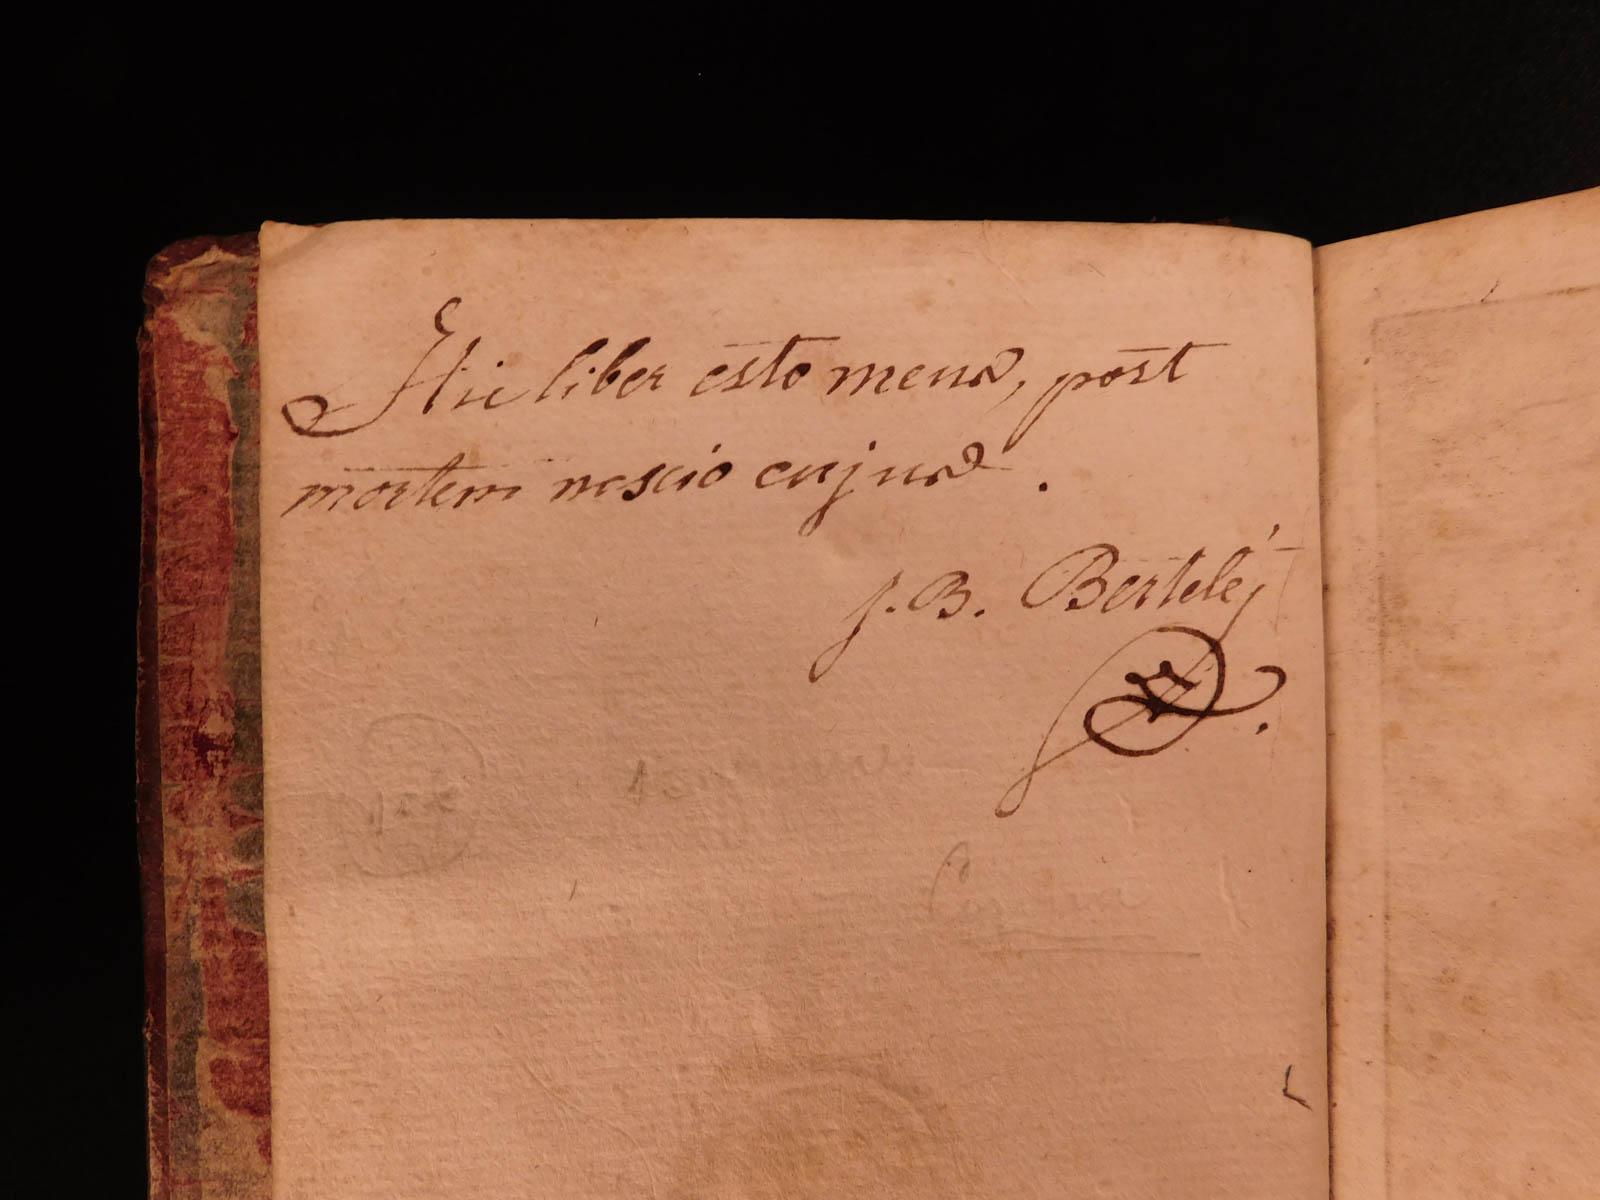 Hic liber esto meus, post
mortem nescio cujus.
J. B. Berteléj